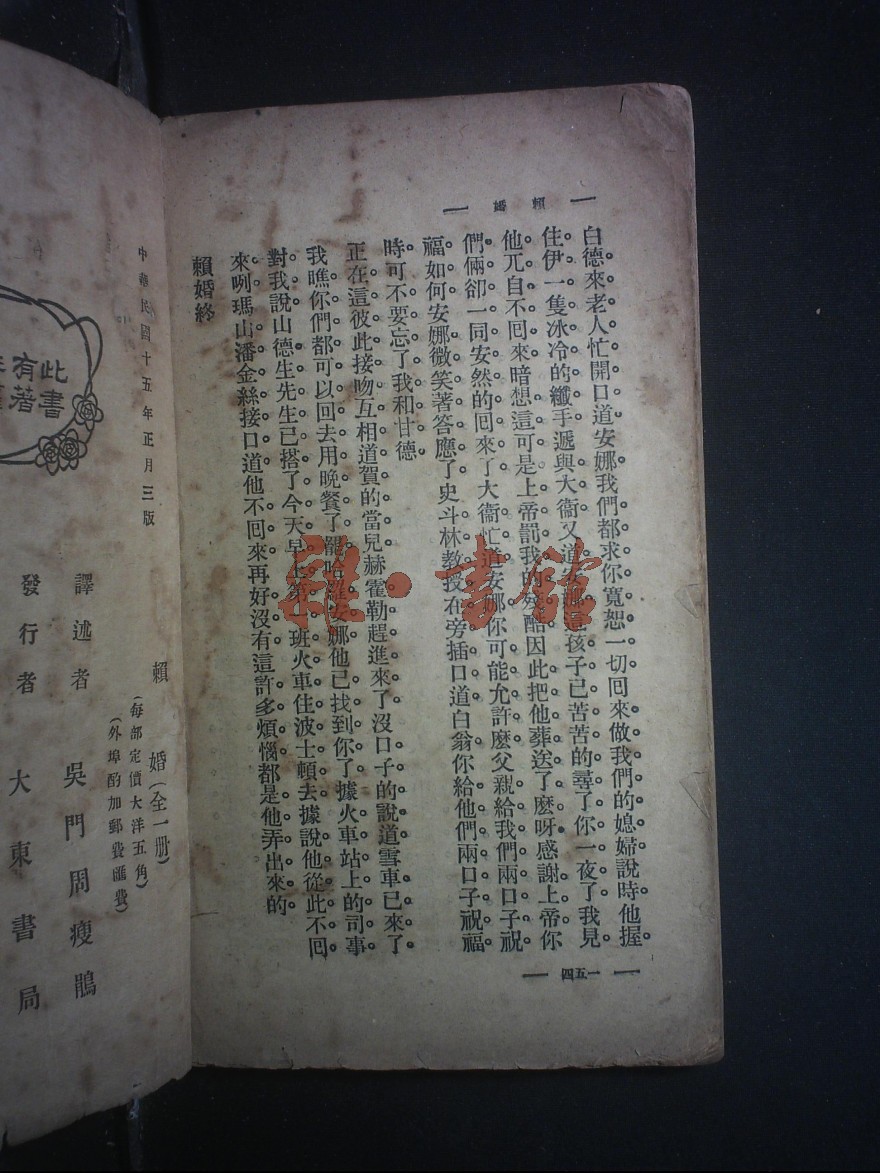 賴婚
白德來老人忙開口道安娜我們都求你寬恕一切回來做我們的媳婦說時他握
住伊一隻冰冷的纖手遞與大衞又道安娜這孩子已苦苦的尋了你一夜了我見
他兀自不回來暗想這可是上帝罰我的殘酷因此把他葬送了麽呀感謝上帝你
們倆卻一同安然的回來了大衞忙道安娜你可能允許麽父親給我們兩口子祝
福如何安娜微笑著答應了史斗林教授在旁插口道白翁你給他們兩口子祝福
時可不要忘了我和甘德
正在這彼此接吻互相道賀的當兒赫霍勒趕進來了沒口子的說道雪車已來了
我瞧你們都可以回去用晚餐了罷哈羅安娜他已找到你了據火車站上的司事
對我說山德生先生已搭了今天早上第一班火車往波士頓去據說他從此不回
來咧瑪山潘金絲接口道他不回來再好沒有這許多煩惱都是他弄出來的
賴婚終
一五四
此書
有著
中華民國十五年正月三版
賴婚(全一册)
(每部定價大洋五角)
(外埠酌加郵費匯費)
譯述者 吳門周瘦鵑
發行者 大東書局
雜·書館